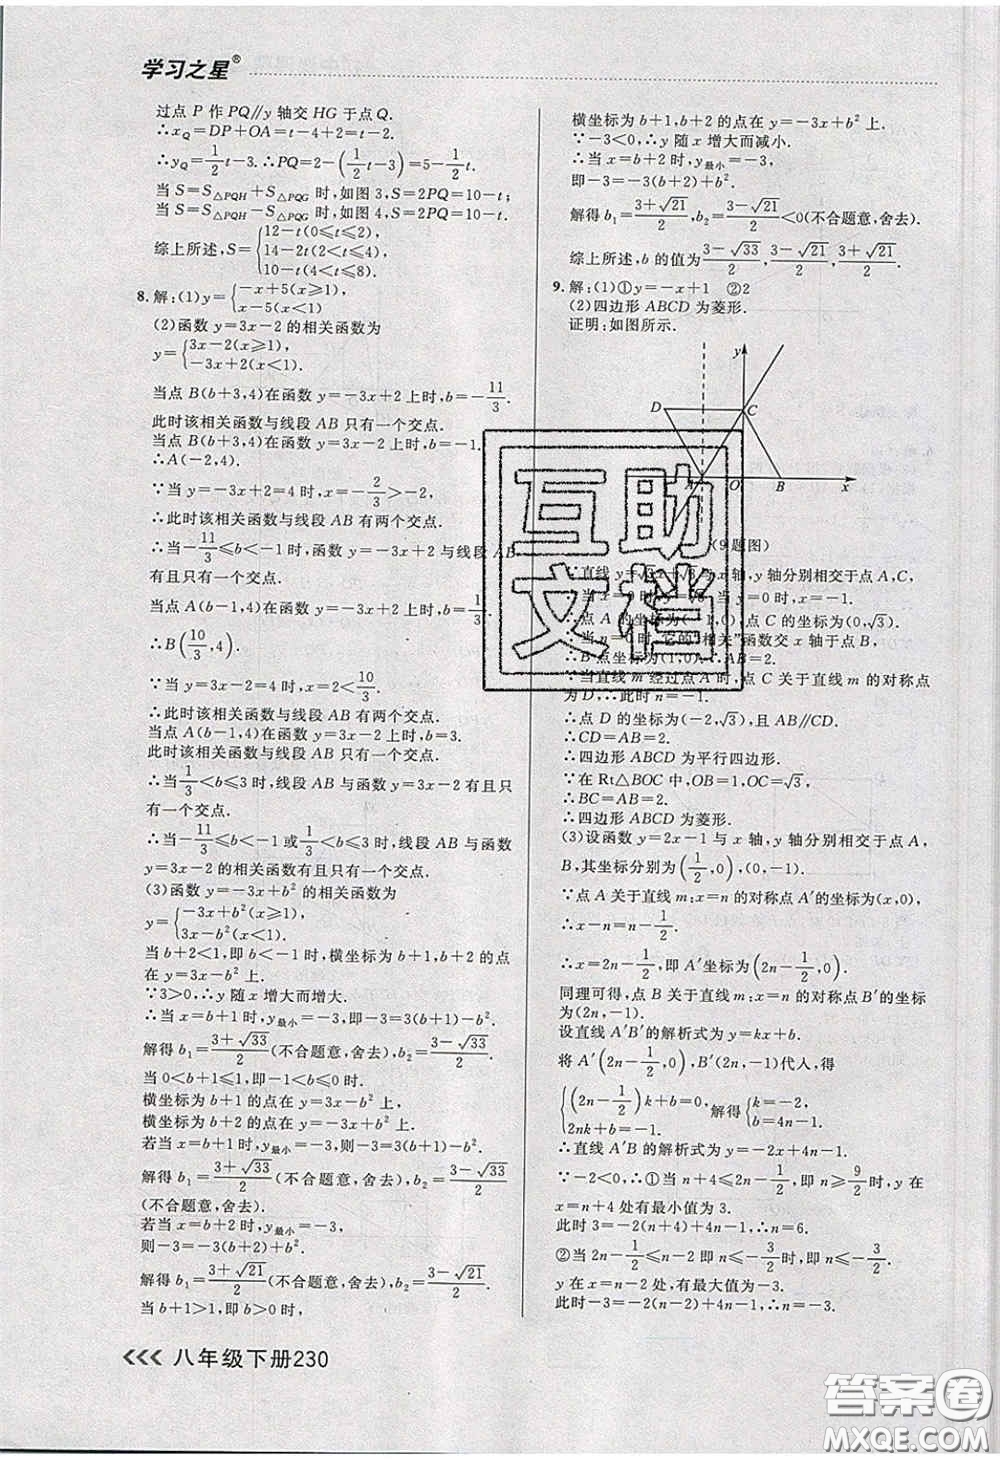 学习之星®
过点 P 作 PQ∥y 轴交 HG 于点 Q.
∴x_Q=DP+OA=t-4+2=t-2.
∴y_Q=\frac{1}{2}t-3.∴PQ=2-(\frac{1}{2}t-3)=5-\frac{1}{2}t.
当 S=S_{△PQH}+S_{△PQG} 时,如图 3,S=2PQ=10-t;
当 S=S_{△PQH}-S_{△PQG} 时,如图 4,S=2PQ=10-t.
综上所述,S={12-t(0⩽t⩽2),
14-2t(2<t⩽4),
10-t(4<t⩽8).
8.解:(1)y={-x+5(x⩾1),
x-5(x<1)
(2)函数 y=3x-2 的相关函数为
y={3x-2(x⩾1),
-3x+2(x<1).
当点 B(b+3,4)在函数 y=-3x+2 上时,b=-\frac{11}{3}.
此时该相关函数与线段 AB 只有一个交点.
当点 B(b+3,4)在函数 y=3x-2 上时,b=-1.
∴A(-2,4).
∵当 y=-3x+2=4 时,x=-\frac{2}{3}>-2.
∴此时该相关函数与线段 AB 有两个交点.
∴当-\frac{11}{3}⩽b<-1 时,函数 y=-3x+2 与线段 AB
有且只有一个交点.
当点 A(b-1,4)在函数 y=-3x+2 上时,b=\frac{1}{3}.
∴B(\frac{10}{3},4).
∵当 y=3x-2=4 时,x=2<\frac{10}{3}.
∴此时该相关函数与线段 AB 有两个交点.
当点 A(b-1,4)在函数 y=3x-2 上时,b=3.
此时该相关函数与线段 AB 只有一个交点.
∴当\frac{1}{3}<b⩽3 时,线段 AB 与函数 y=3x-2 有且只有
一个交点.
∴当-\frac{11}{3}⩽b<-1 或\frac{1}{3}<b⩽3 时,线段 AB 与函数
y=3x-2 的相关函数有且只有一个交点.
(3)函数 y=-3x+b² 的相关函数为
y={-3x+b²(x⩾1),
3x-b²(x<1).
当 b+2<1,即 b<-1 时,横坐标为 b+1,b+2 的点
在 y=3x-b² 上.
∵3>0,∴y 随 x 增大而增大.
∴当 x=b+1 时,y_{最小}=-3,即-3=3(b+1)-b².
解得 b₁=\frac{3+√33}{2}(不合题意,舍去),b₂=\frac{3-√33}{2}.
当 0<b+1⩽1,即-1<b⩽0 时,
横坐标为 b+1 的点在 y=3x-b² 上,
横坐标为 b+2 的点在 y=-3x+b² 上.
若当 x=b+1 时,y_{最小}=-3,则-3=3(b+1)-b².
解得 b₁=\frac{3+√33}{2}(不合题意,舍去),b₂=\frac{3-√33}{2}
(不合题意,舍去).
若当 x=b+2 时,y_{最小}=-3,
则-3=-3(b+2)+b².
解得 b₁=\frac{3+√21}{2}(不合题意,舍去),b₂=\frac{3-√21}{2}.
当 b+1>1,即 b>0 时,
横坐标为 b+1,b+2 的点在 y=-3x+b² 上.
∵-3<0,∴y 随 x 增大而减小.
∴当 x=b+2 时,y_{最小}=-3,
即-3=-3(b+2)+b².
解得 b₁=\frac{3+√21}{2},b₂=\frac{3-√21}{2}<0(不合题意,舍去).
综上所述,b 的值为\frac{3-√33}{2},\frac{3-√21}{2},\frac{3+√21}{2}.
9.解:(1)①y=-x+1 ②2
(2)四边形 ABCD 为菱形.
证明:如图所示.
y
D
C
A
O
B
x
(9题图)
∵直线 y=√3x+√3 与 x 轴,y 轴分别相交于点 A,C,
当 x=0 时,
∴点 A 的坐标为(-1,0),点 C 的坐标为(0,√3).
∵当 n=0 时,它的“相关”函数交 x 轴于点 B,
∴B 点坐标为(1,0).∴AB=2.
∵当直线 m 经过点 A 时,点 C 关于直线 m 的对称点
为 D,∴此时 n=-1.
∴点 D 的坐标为(-2,√3),且 AB∥CD.
∴CD=AB=2.
∴四边形 ABCD 为平行四边形.
∵在 Rt△BOC 中,OB=1,OC=√3,
∴BC=AB=2.
∴四边形 ABCD 为菱形.
(3)设函数 y=2x-1 与 x 轴,y 轴分别相交于点 A,
B,其坐标分别为(\frac{1}{2},0),(0,-1).
∵点 A 关于直线 m:x=n 的对称点 A′的坐标为(x,0),
∴x-n=n-\frac{1}{2}.
∴x=2n-\frac{1}{2},即 A′坐标为(2n-\frac{1}{2},0).
同理可得,点 B 关于直线 m:x=n 的对称点 B′的坐标
为(2n,-1).
设直线 A′B′的解析式为 y=kx+b.
将 A′(2n-\frac{1}{2},0),B′(2n,-1)代人,得
{(2n-\frac{1}{2})k+b=0,
2nk+b=-1, 解得{k=-2,
b=4n-1.
∴直线 A′B′的解析式为 y=-2x+4n-1.
∵-2<0,∴①当 n+4⩽2n-\frac{1}{2},即 n⩾\frac{9}{2}时,y 在
x=n+4 处有最小值为 3.
此时 3=-2(n+4)+4n-1,∴n=6.
②当 2n-\frac{1}{2}⩽n-2 即 n⩽-\frac{3}{2}时,即 n⩽-\frac{3}{2}时,
y 在 x=n-2 处,有最大值为-3.
此时-3=-2(n-2)+4n-1.∴n=-3.
八年级下册230
互助
文档
答案卷
MXQE.COM